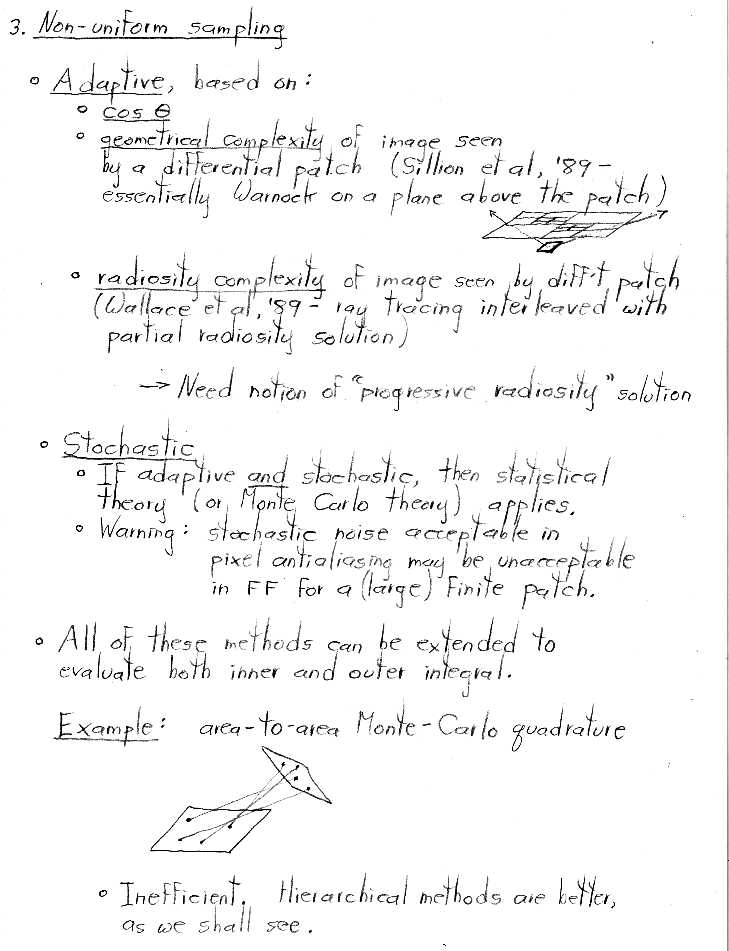 3. Non-uniform sampling
◦ Adaptive, based on:
◦ cos θ
◦ geometrical complexity of image seen
by a differential patch (Sillion et al, '89 -
essentially Warnock on a plane above the patch)
◦ radiosity complexity of image seen by diff't patch
(Wallace et al, '89 - ray tracing interleaved with
partial radiosity solution)
→ Need notion of "progressive radiosity" solution
◦ Stochastic
◦ If adaptive and stochastic, then statistical
theory (or Monte Carlo theory) applies.
◦ Warning: stochastic noise acceptable in
pixel antialiasing may be unacceptable
in FF for a (large) finite patch.
◦ All of these methods can be extended to
evaluate both inner and outer integral.
Example: area-to-area Monte-Carlo quadrature
◦ Inefficient. Hierarchical methods are better,
as we shall see.